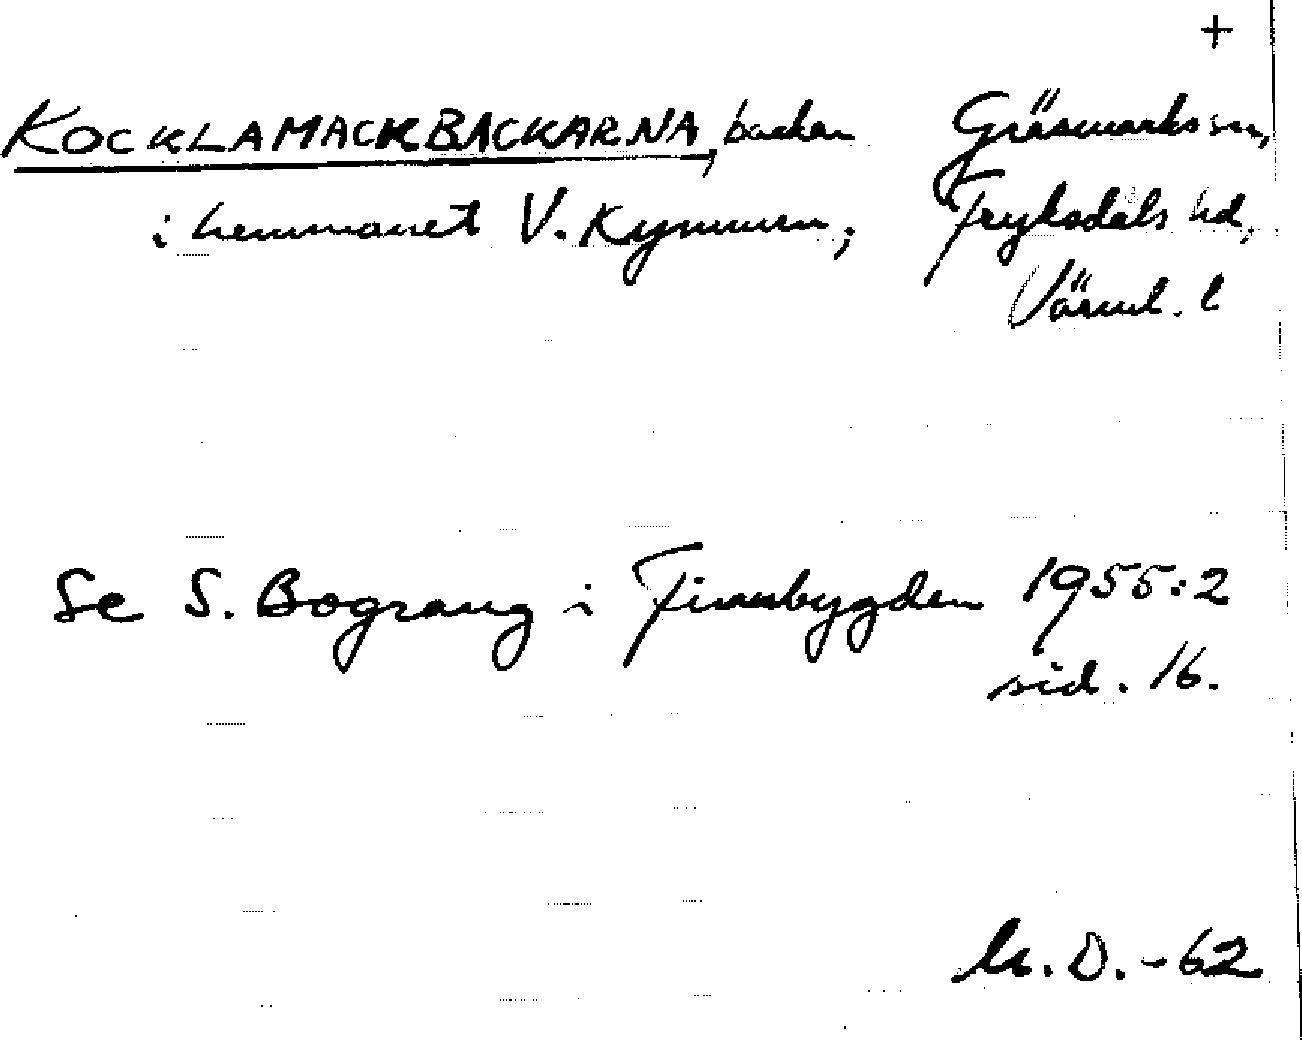 +
KOCKLAMACKBACKARNA, backar Gräsmarks sn,
i hemmanet V. Kymmen; Fryksdals hd,
Värml. l
Se S. Bograng i Finnbygden 1955:2
sid. 16.
M. D. -62